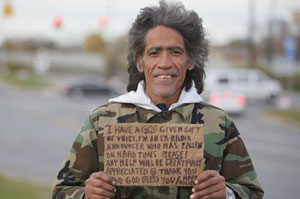 I HAVE A GOD GIVEN GIFT
OF VOICE. I'M AN EX-RADIO
ANNOUNCER WHO HAS FALLEN
ON HARD TIMES. PLEASE!
ANY HELP WILL BE GREATFULLY
APPRECIATED. THANK YOU
AND GOD BLESS YOU. HAPPY